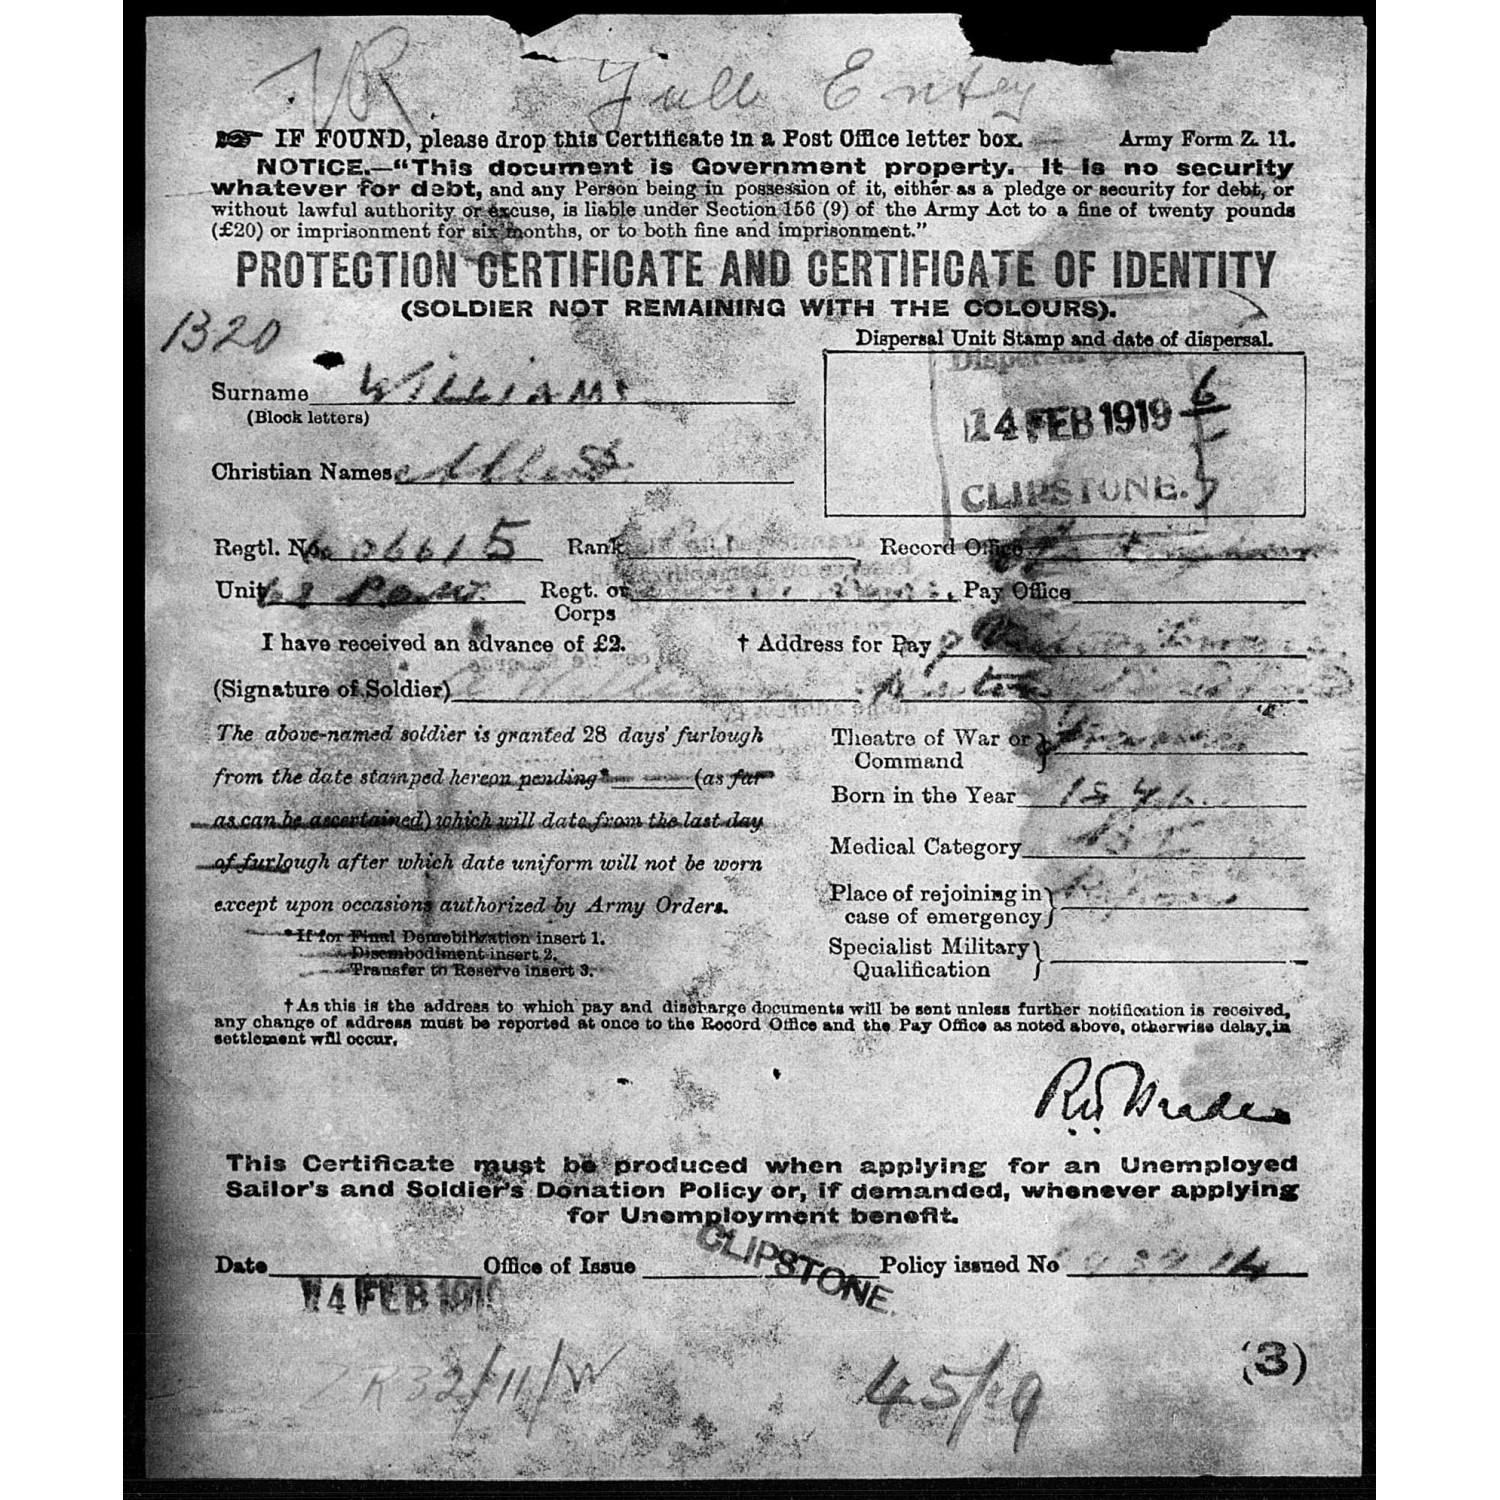 Full Entry
IF FOUND, please drop this Certificate in a Post Office letter box. Army Form Z. 11.
NOTICE.—"This document is Government property. It is no security
whatever for debt, and any Person being in possession of it, either as a pledge or security for debt, or
without lawful authority or excuse, is liable under Section 156 (9) of the Army Act to a fine of twenty pounds
(£20) or imprisonment for six months, or to both fine and imprisonment."
PROTECTION CERTIFICATE AND CERTIFICATE OF IDENTITY
(SOLDIER NOT REMAINING WITH THE COLOURS).
1320
Dispersal Unit Stamp and date of dispersal.
14 FEB 1919
CLIPSTONE.
Surname WILLIAMS
(Block letters)
Christian Names Albert
Regtl. No. Rank Record Office
Unit Regt. or Corps Pay Office
I have received an advance of £2. † Address for Pay
(Signature of Soldier)
The above-named soldier is granted 28 days' furlough
from the date stamped hereon pending* (as far
as can be ascertained) which will date from the last day
of furlough after which date uniform will not be worn
except upon occasions authorized by Army Orders.
*If for Final Demobilization insert 1.
Disembodiment insert 2.
Transfer to Reserve insert 3.
Theatre of War or Command France
Born in the Year
Medical Category
Place of rejoining in case of emergency
Specialist Military Qualification
† As this is the address to which pay and discharge documents will be sent unless further notification is received,
any change of address must be reported at once to the Record Office and the Pay Office as noted above, otherwise delay in
settlement will occur.
This Certificate must be produced when applying for an Unemployed
Sailor's and Soldier's Donation Policy or, if demanded, whenever applying
for Unemployment benefit.
Date 14 FEB 1919 Office of Issue CLIPSTONE. Policy issued No
ZR32/11/W
45/19
(3)